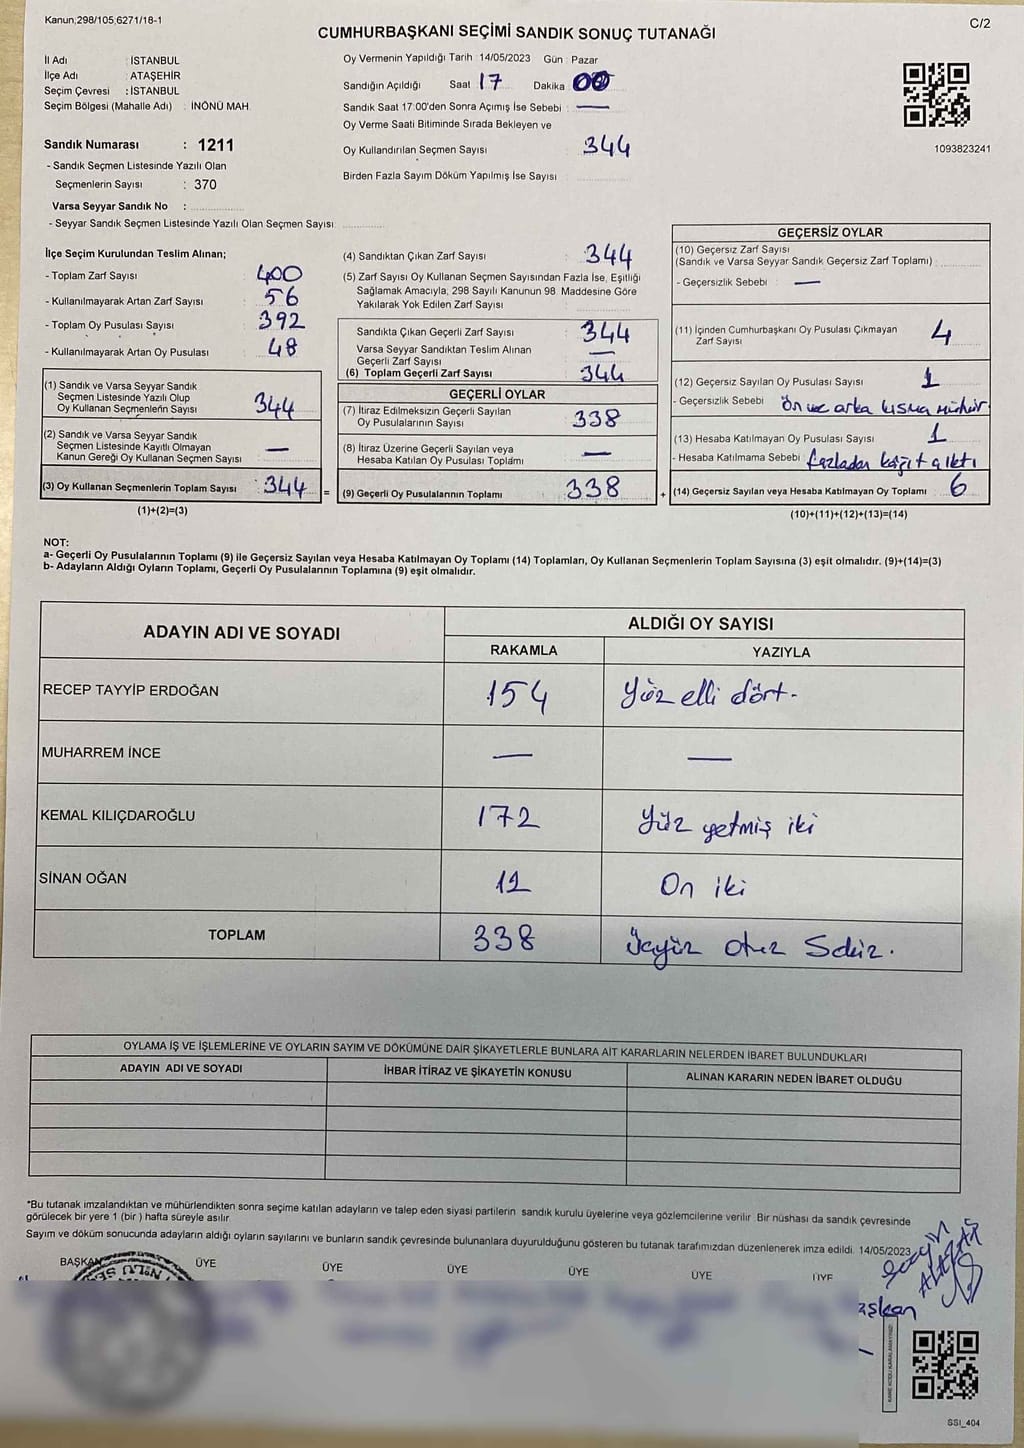 Kanun,298/105,6271/18-1
C/2
CUMHURBAŞKANI SEÇİMİ SANDIK SONUÇ TUTANAĞI
İl Adı : İSTANBUL
İlçe Adı : ATAŞEHİR
Seçim Çevresi : İSTANBUL
Seçim Bölgesi (Mahalle Adı) : İNÖNÜ MAH.
Sandık Numarası : 1211
- Sandık Seçmen Listesinde Yazılı Olan
Seçmenlerin Sayısı : 370
Varsa Seyyar Sandık No :
- Seyyar Sandık Seçmen Listesinde Yazılı Olan Seçmen Sayısı:
Oy Vermenin Yapıldığı Tarih 14/05/2023 Gün : Pazar
Sandığın Açıldığı Saat 17 Dakika 00
Sandık Saat 17:00'den Sonra Açımış İse Sebebi : —
Oy Verme Saati Bitiminde Sırada Bekleyen ve
Oy Kullandırılan Seçmen Sayısı : 344
Birden Fazla Sayım Döküm Yapılmış İse Sayısı
1093823241
İlçe Seçim Kurulundan Teslim Alınan;
- Toplam Zarf Sayısı : 400
- Kullanılmayarak Artan Zarf Sayısı : 56
- Toplam Oy Pusulası Sayısı : 392
- Kullanılmayarak Artan Oy Pusulası : 48
(1) Sandık ve Varsa Seyyar Sandık
Seçmen Listesinde Yazılı Olup
Oy Kullanan Seçmenlerin Sayısı : 344
(2) Sandık ve Varsa Seyyar Sandık
Seçmen Listesinde Kayıtlı Olmayan
Kanun Gereği Oy Kullanan Seçmen Sayısı : —
(3) Oy Kullanan Seçmenlerin Toplam Sayısı : 344 =
(1)+(2)=(3)
(4) Sandıktan Çıkan Zarf Sayısı : 344
(5) Zarf Sayısı Oy Kullanan Seçmen Sayısından Fazla İse, Eşitliği
Sağlamak Amacıyla, 298 Sayılı Kanunun 98. Maddesine Göre
Yakılarak Yok Edilen Zarf Sayısı :
Sandıkta Çıkan Geçerli Zarf Sayısı : 344
Varsa Seyyar Sandıktan Teslim Alınan
Geçerli Zarf Sayısı : —
(6) Toplam Geçerli Zarf Sayısı : 344
GEÇERLİ OYLAR
(7) İtiraz Edilmeksizin Geçerli Sayılan
Oy Pusulalarının Sayısı : 338
(8) İtiraz Üzerine Geçerli Sayılan veya
Hesaba Katılan Oy Pusulası Toplamı : —
(9) Geçerli Oy Pusulalarının Toplamı : 338 +
GEÇERSİZ OYLAR
(10) Geçersiz Zarf Sayısı
(Sandık ve Varsa Seyyar Sandık Geçersiz Zarf Toplamı) :
- Geçersizlik Sebebi : —
(11) İçinden Cumhurbaşkanı Oy Pusulası Çıkmayan
Zarf Sayısı : 4
(12) Geçersiz Sayılan Oy Pusulası Sayısı : 1
- Geçersizlik Sebebi : ön ve arka kısma mühür
(13) Hesaba Katılmayan Oy Pusulası Sayısı : 1
- Hesaba Katılmama Sebebi : fazladan kağıt çıktı
(14) Geçersiz Sayılan veya Hesaba Katılmayan Oy Toplamı : 6
(10)+(11)+(12)+(13)=(14)
NOT:
a- Geçerli Oy Pusulalarının Toplamı (9) ile Geçersiz Sayılan veya Hesaba Katılmayan Oy Toplamı (14) Toplamları, Oy Kullanan Seçmenlerin Toplam Sayısına (3) eşit olmalıdır. (9)+(14)=(3)
b- Adayların Aldığı Oyların Toplamı, Geçerli Oy Pusulalarının Toplamına (9) eşit olmalıdır.
ADAYIN ADI VE SOYADI
ALDIĞI OY SAYISI
RAKAMLA YAZIYLA
RECEP TAYYİP ERDOĞAN 154 Yüz elli dört -
MUHARREM İNCE — —
KEMAL KILIÇDAROĞLU 172 Yüz yetmiş iki
SİNAN OĞAN 12 On iki
TOPLAM 338 Üçyüz otuz Sekiz.
OYLAMA İŞ VE İŞLEMLERİNE VE OYLARIN SAYIM VE DÖKÜMÜNE DAİR ŞİKAYETLERLE BUNLARA AİT KARARLARIN NELERDEN İBARET BULUNDUKLARI
ADAYIN ADI VE SOYADI İHBAR İTİRAZ VE ŞİKAYETİN KONUSU ALINAN KARARIN NEDEN İBARET OLDUĞU
*Bu tutanak imzalandıktan ve mühürlendikten sonra seçime katılan adayların ve talep eden siyasi partilerin sandık kurulu üyelerine veya gözlemcilerine verilir. Bir nüshası da sandık çevresinde
görülecek bir yere 1 (bir ) hafta süreyle asılır.
Sayım ve döküm sonucunda adayların aldığı oyların sayılarını ve bunların sandık çevresinde bulunanlara duyurulduğunu gösteren bu tutanak tarafımızdan düzenlenerek imza edildi. 14/05/2023
BAŞKAN ÜYE ÜYE ÜYE ÜYE ÜYE ÜYE
SSI_404